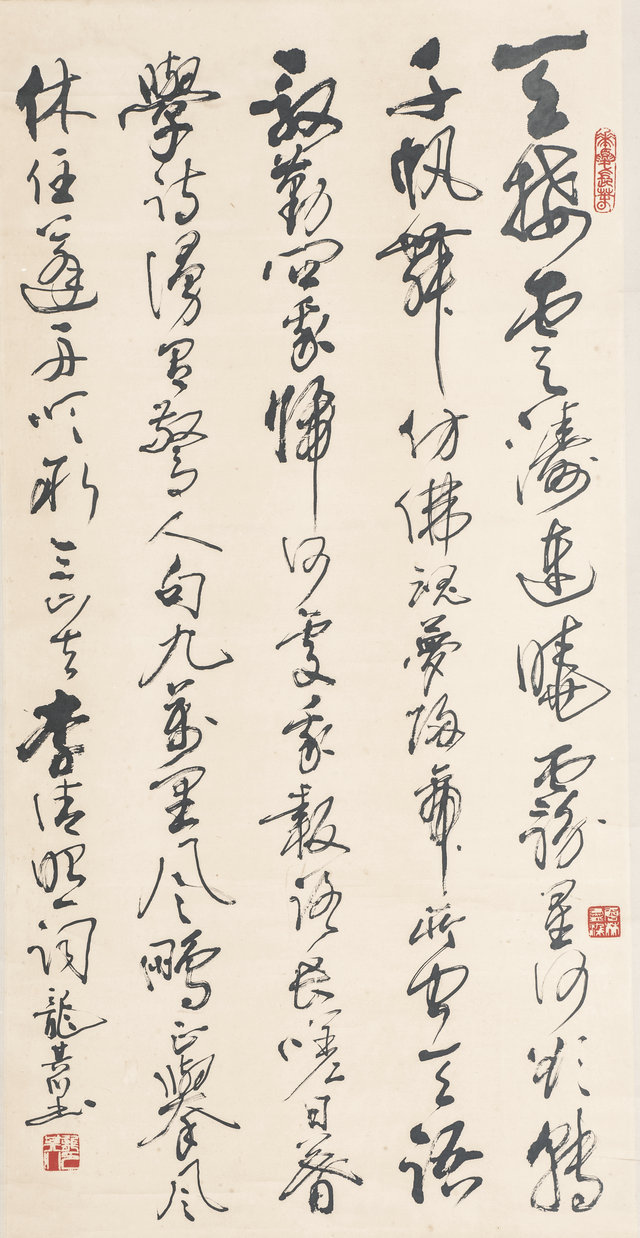 天接雲濤連曉霧星河欲轉
千帆舞仿佛魂夢歸帝所聞天語
殷勤問我歸何處我報路長嗟日暮
學詩漫有驚人句九萬里風鵬正舉風
休住蓬舟吹取三山去李清照詞龍其川書